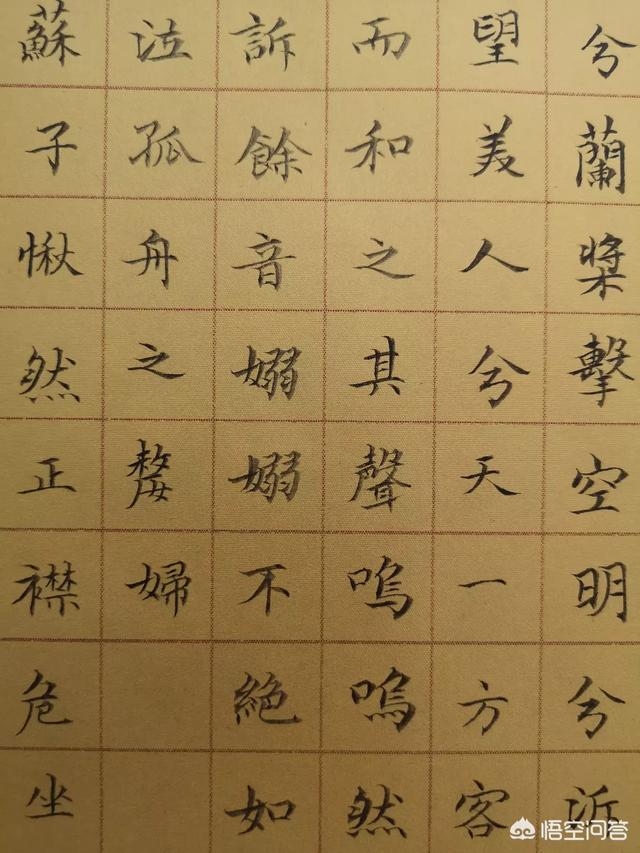 兮蘭槳擊空明兮泝
望美人兮天一方客
而和之其聲嗚嗚然
訴餘音嫋嫋不絕如
泣孤舟之嫠婦
蘇子愀然正襟危坐
悟空问答